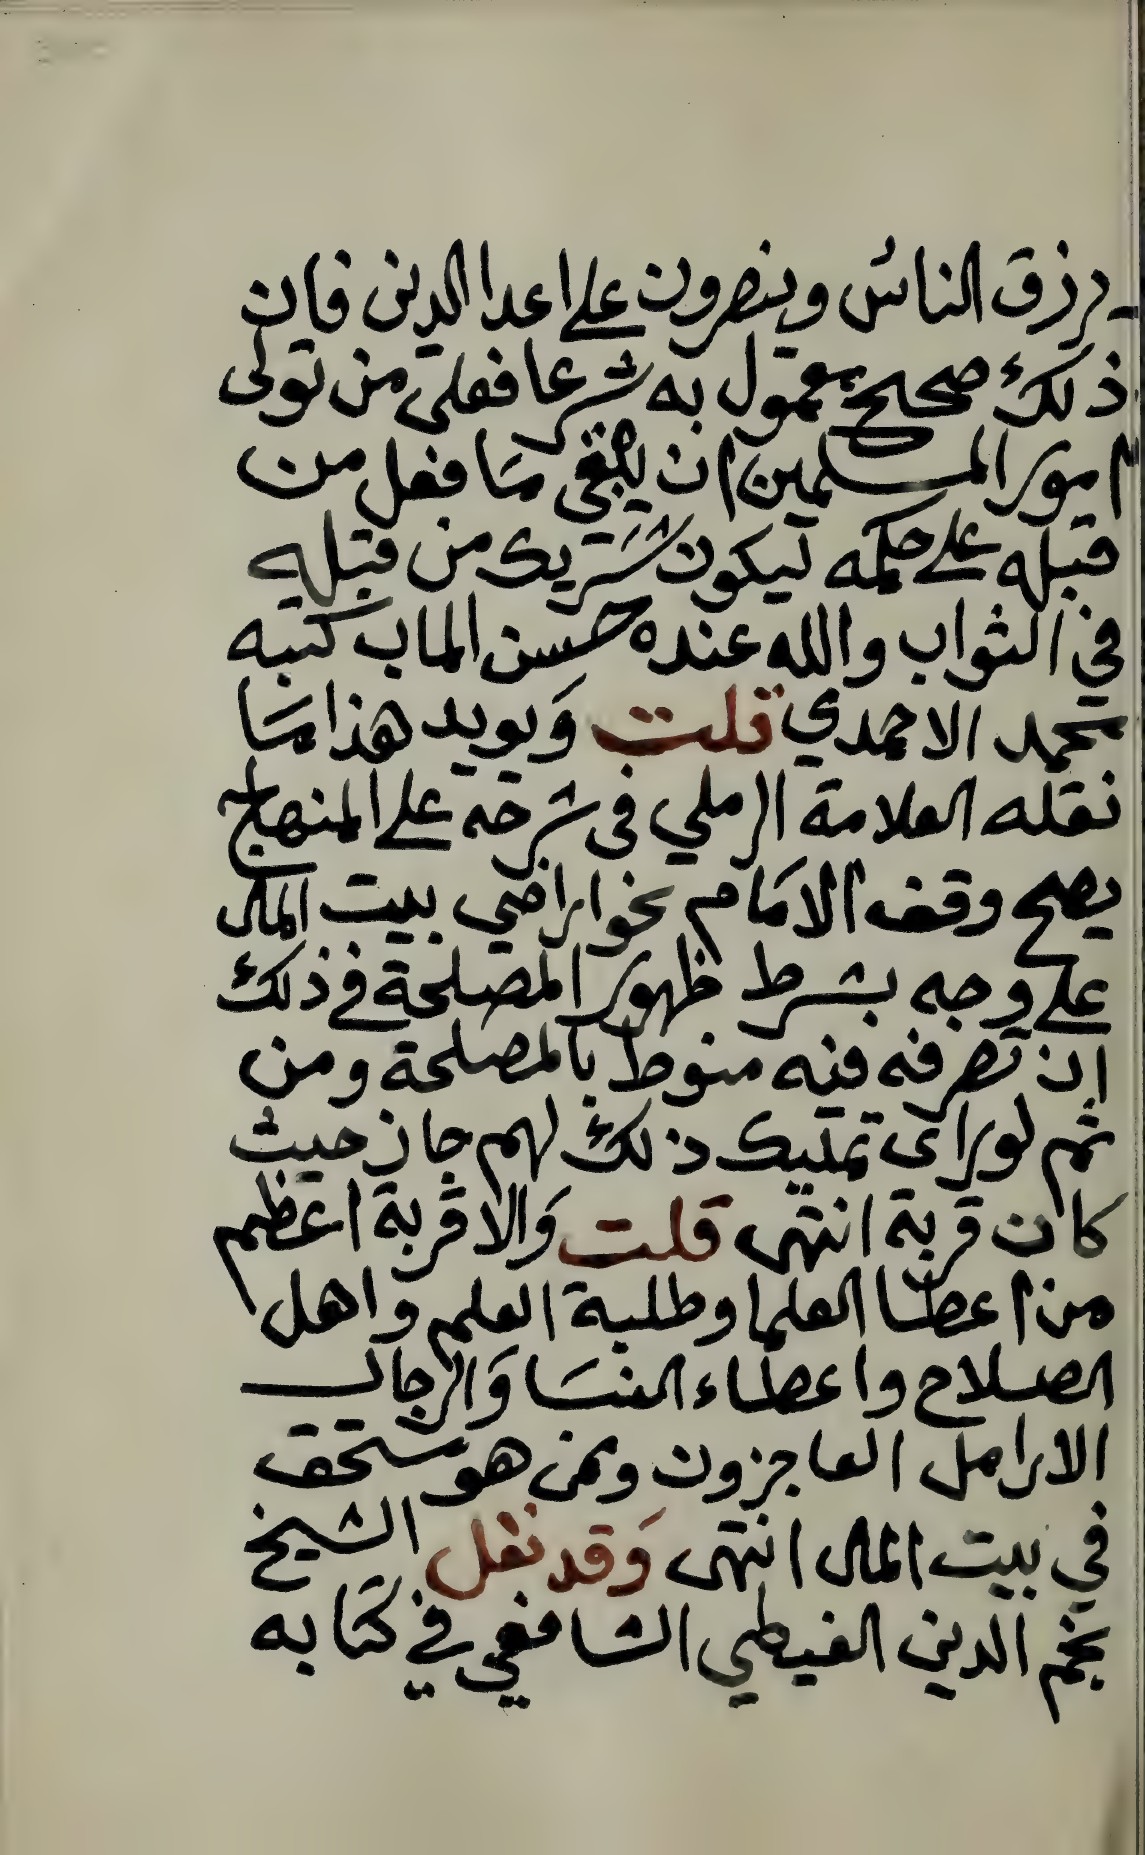 يرزق الناس وينصرون على اعدا الدين فان
ذلك صحيح معمول به شرعا فعلى من تولى
امور المسلمين ان يبقى ما فعل من
قبله على حكمه ليكون شريك من قبله
في الثواب والله عنده حسن الماب كتبه
محمد الاحمدي قلت ويويد هذا ما
نقله العلامة الرملي في شرحه على المنهاج
يصح وقف الامام نحو اراضي بيت المال
على وجه بشرط ظهور المصلحة في ذلك
اذ تصرفه فيه منوط بالمصلحة ومن
ثم لوراى تمليك ذلك لهم جاز حيث
كان قربة انتهى قلت والا قربة اعظم
من اعطا العلما وطلبة العلم واهل
الصلاح واعطاء النسا والرجال
الارامل العاجزون وممن هو مستحق
في بيت المال انتهى وقد نقل الشيخ
نجم الدين الغيطي الشافعي في كتابه